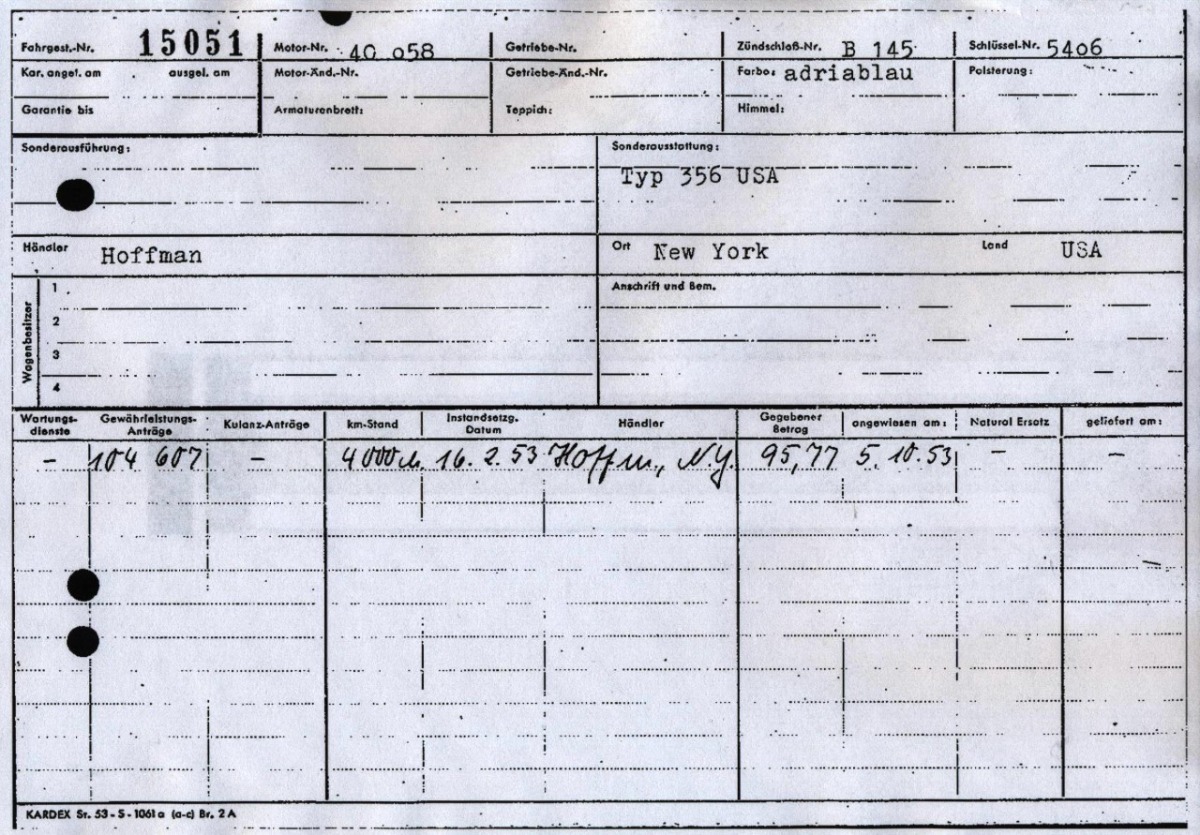 Fahrgest.-Nr. 15051 Motor-Nr. 40 058 Getriebe-Nr. Zündschloß-Nr. B 145 Schlüssel-Nr. 5406
Kar. angel. am ausgel. am Motor-Änd.-Nr. Getriebe-Änd.-Nr. Farbe: adriablau Polsterung:
Garantie bis Armaturenbrett: Teppich: Himmel:
Sonderausführung: Sonderausstattung:
Typ 356 USA
Händler Hoffman Ort New York Land USA
Wagenbesitzer 1 Anschrift und Bem.
2
3
4
Wartungs- Gewährleistungs- Kulanz-Anträge km-Stand Instandsetzg. Händler Gegebener angewiesen am: Natural Ersatz geliefert am:
dienste Anträge Datum Betrag
- 104 607 - 4000 16. 2. 53 Hoffm., N.Y. 95,77 5. 10. 53 - -
KARDEX Sr. 53-S-1061a (a-c) Br. 2A